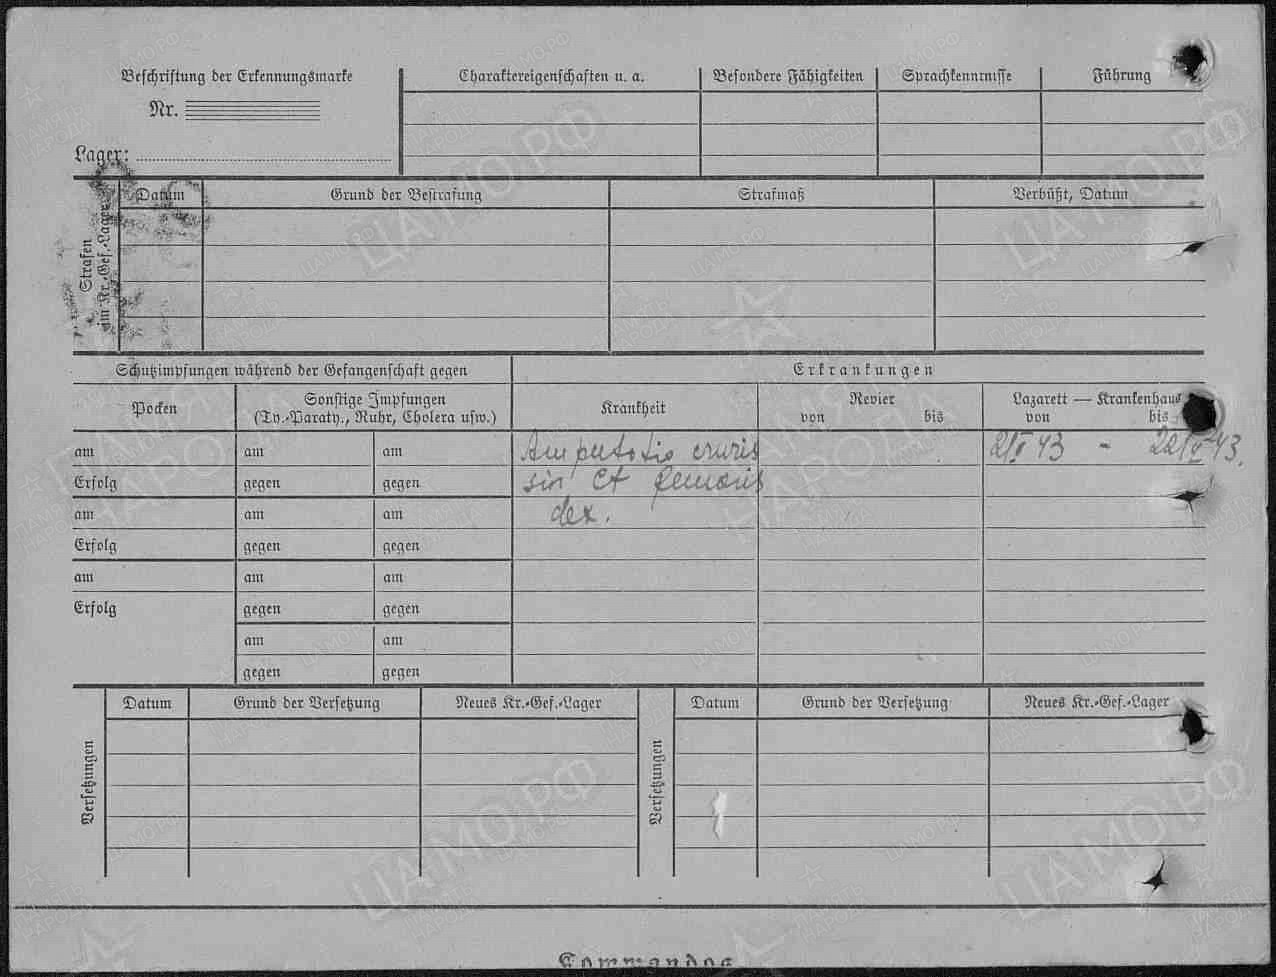 Beschriftung der Erkennungsmarke
Nr.
Lager:
Charaktereigenschaften u. a.
Besondere Fähigkeiten
Sprachkenntnisse
Führung
Strafen
im Kr.-Gef.-Lager
Datum
Grund der Bestrafung
Strafmaß
Verbüßt, Datum
Schutzimpfungen während der Gefangenschaft gegen
Erkrankungen
Pocken
Sonstige Impfungen
(Ty.-Paraty., Ruhr, Cholera usw.)
Krankheit
Revier
von bis
Lazarett — Krankenhaus
von bis
am am am Amputatio cruris 2/I 43 - 22/V 43.
Erfolg gegen gegen sin et femoris
am am am dex.
Erfolg gegen gegen
am am am
Erfolg gegen gegen
am am
gegen gegen
Versetzungen
Datum
Grund der Versetzung
Neues Kr.-Gef.-Lager
Versetzungen
Datum
Grund der Versetzung
Neues Kr.-Gef.-Lager
Commandos
ЦАМО.РФ
ПАМЯТЬ
НАРОДА